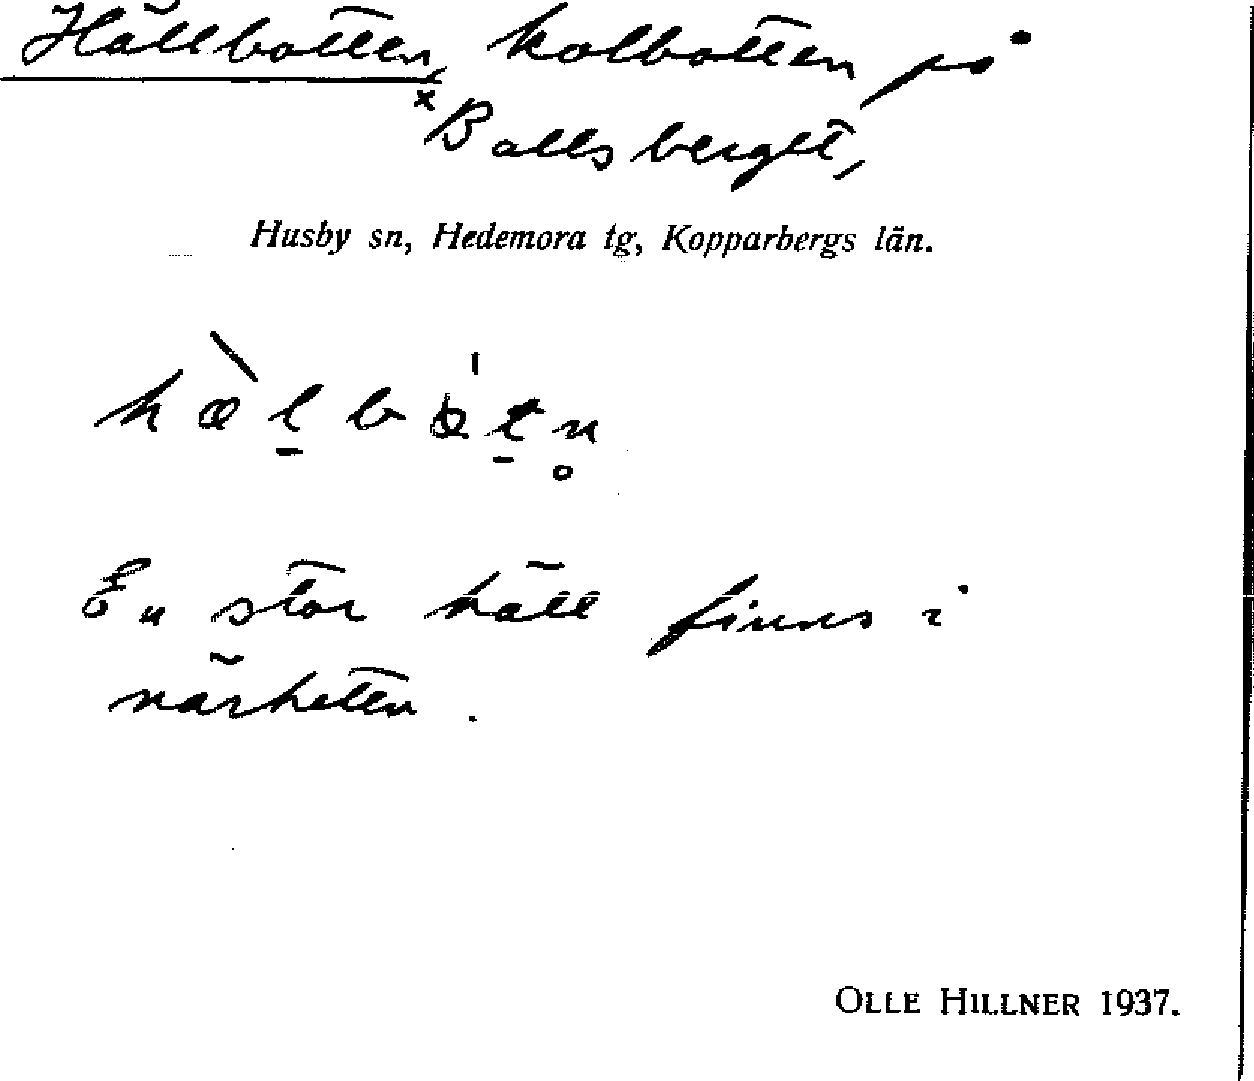 Hällbotten, kolbotten på
×Ballsberget,
Husby sn, Hedemora tg, Kopparbergs län.
En stor häll finns i
närheten.
OLLE HILLNER 1937.